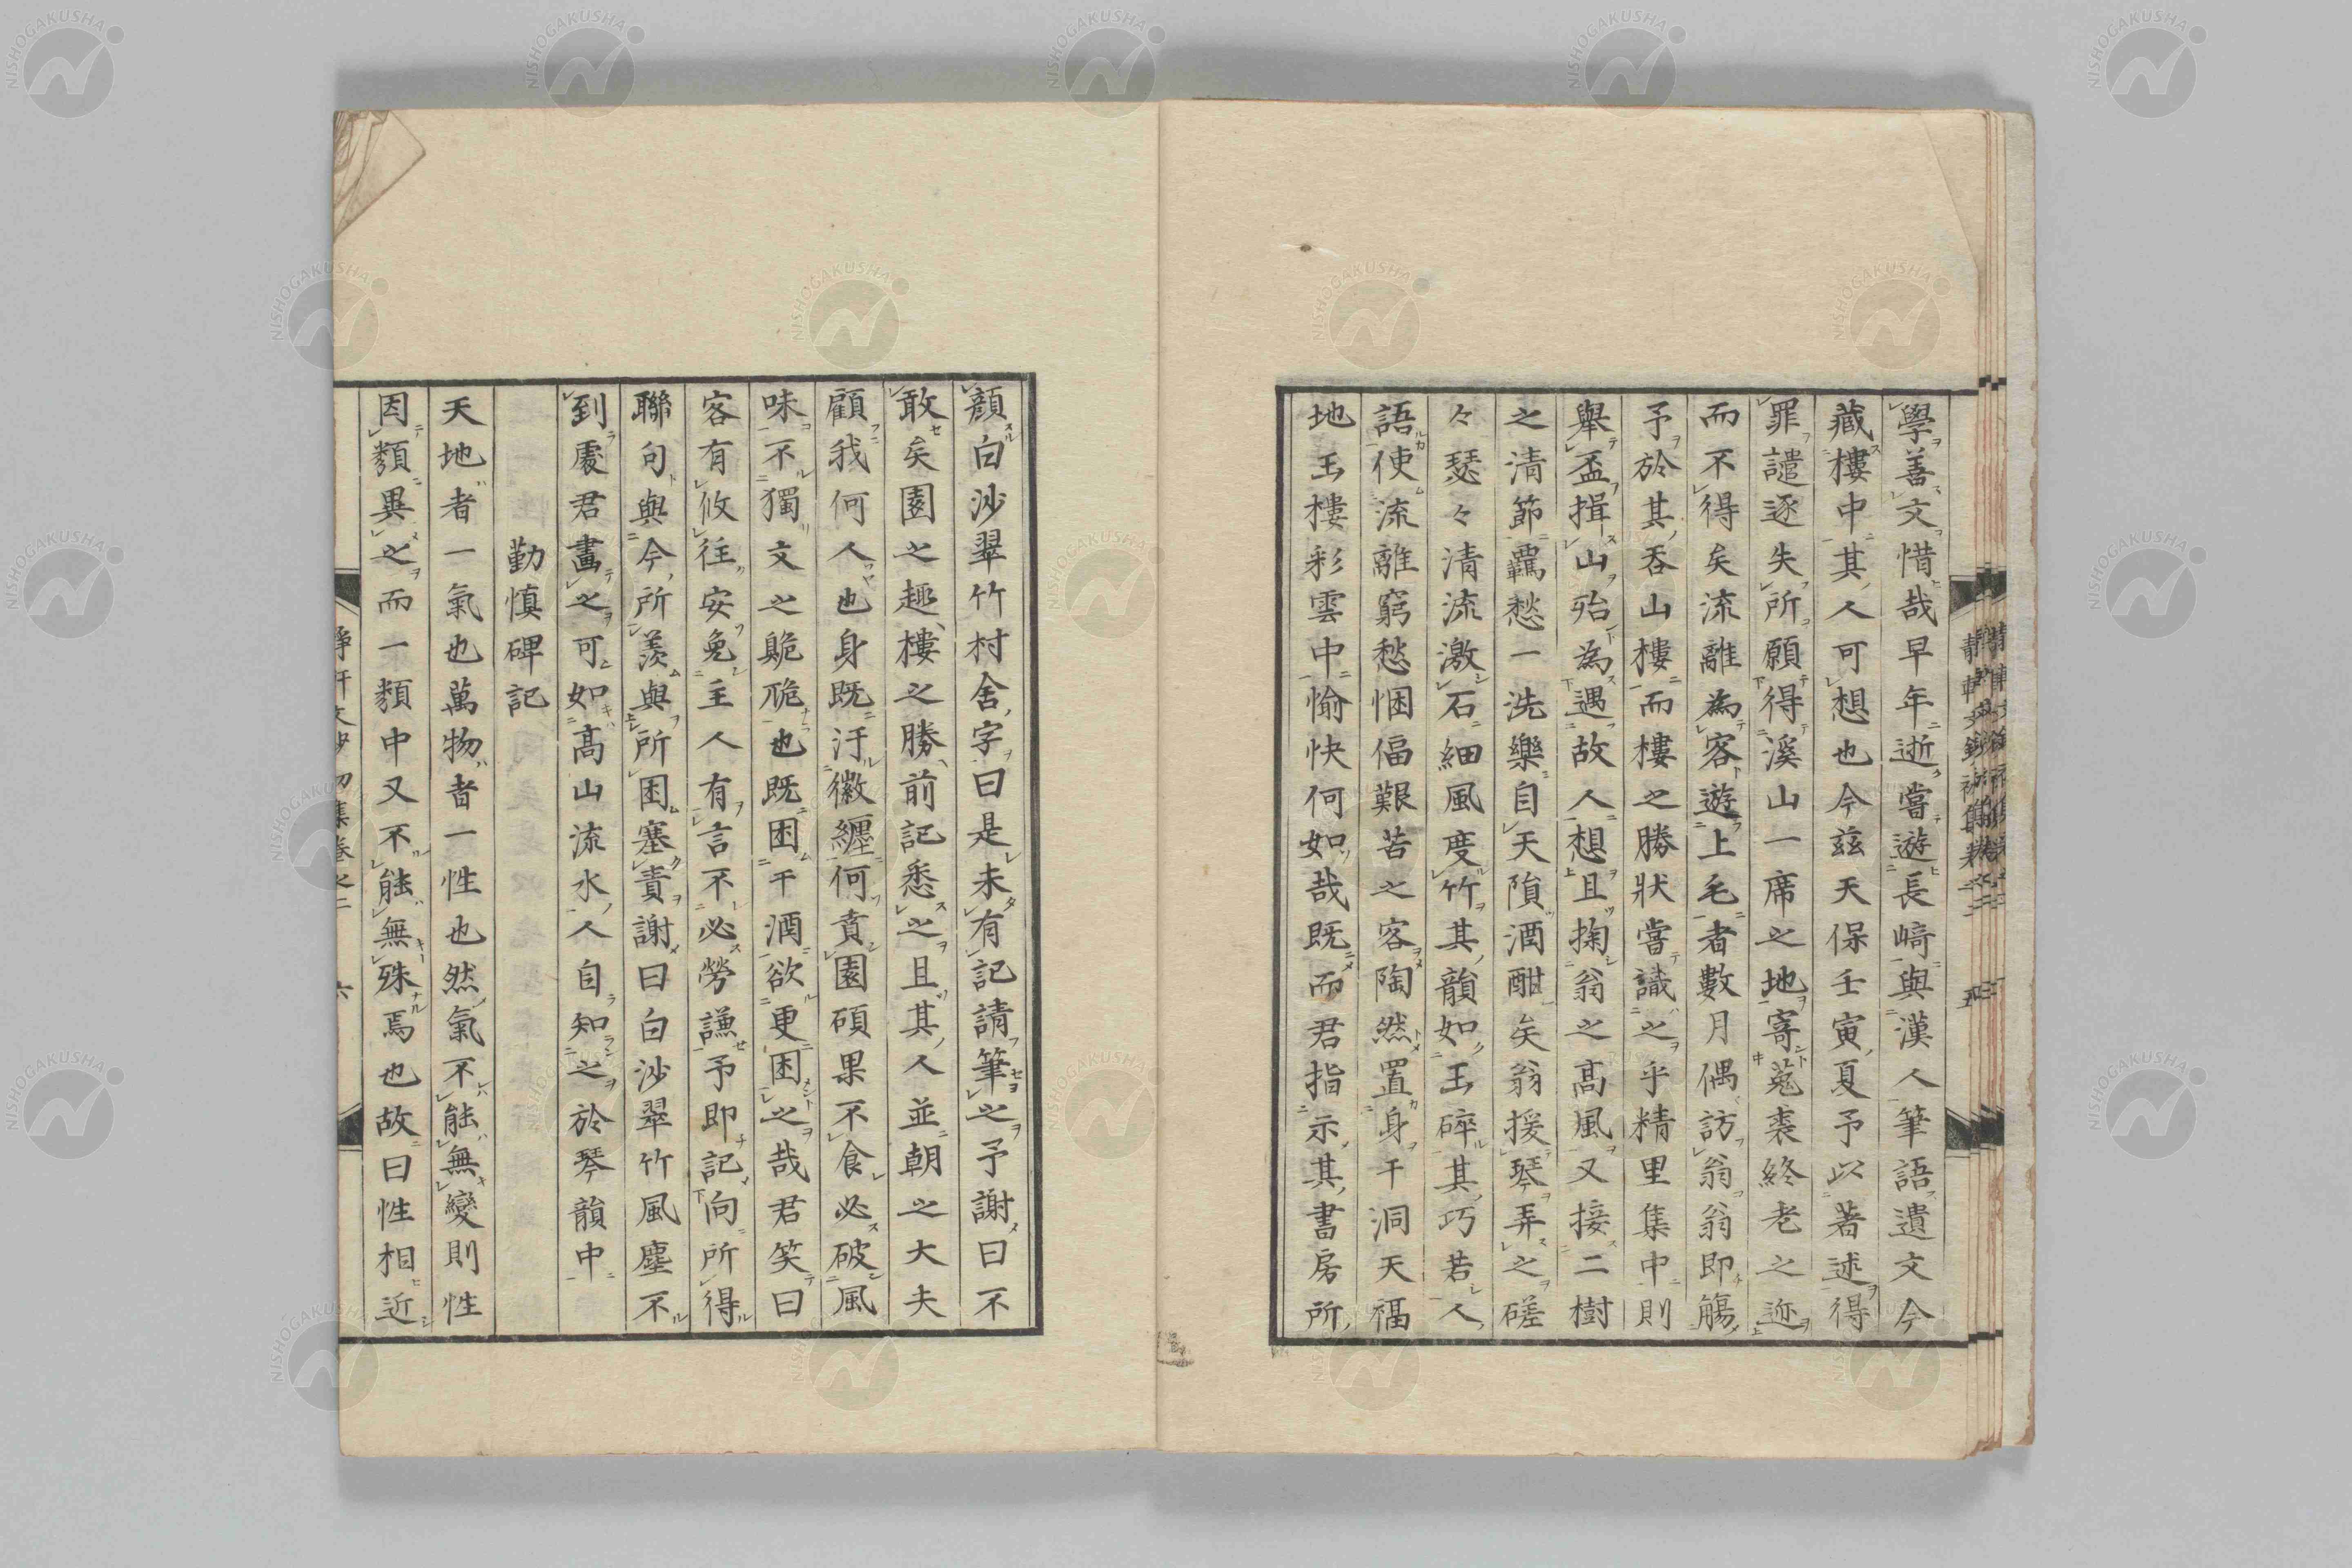 學善文惜哉早年逝嘗遊長﨑與漢人筆語遺文今
藏樓中其人可想也今茲天保壬寅夏予以著述得
罪譴逐失所願得溪山一席之地寄菟裘終老之迹
而不得矣流離為客遊上毛者數月偶訪翁翁即觴
予於其吞山樓而樓之勝狀嘗識之乎精里集中則
舉盃揖山殆為遇故人想且掬翁之高風又接二樹
之清節羈愁一洗樂自天隕酒酣矣翁援琴弄之磋
々瑟々清流激石細風度竹其韻如玉碎其巧若人
語使流離窮愁悃偪艱苦之客陶然置身干洞天福
地玉樓彩雲中愉快何如哉既而君指示其書房所
顏白沙翠竹村舍字曰是未有記請筆之予謝曰不
敢矣園之趣樓之勝前記悉之且其人並朝之大夫
顧我何人也身既汙徽纆何賁園碩果不食必破風
味不獨文之臲卼也既困干酒欲更困之哉君笑曰
客有攸往安免主人有言不必勞謙予即記向所得
聯句與今所羨與所困塞責謝曰白沙翠竹風塵不
到處君畫之可如高山流水人自知之於琴韻中
勤慎碑記
天地者一氣也萬物者一性也然氣不能無變則性
因類異之而一類中又不能無殊焉也故曰性相近